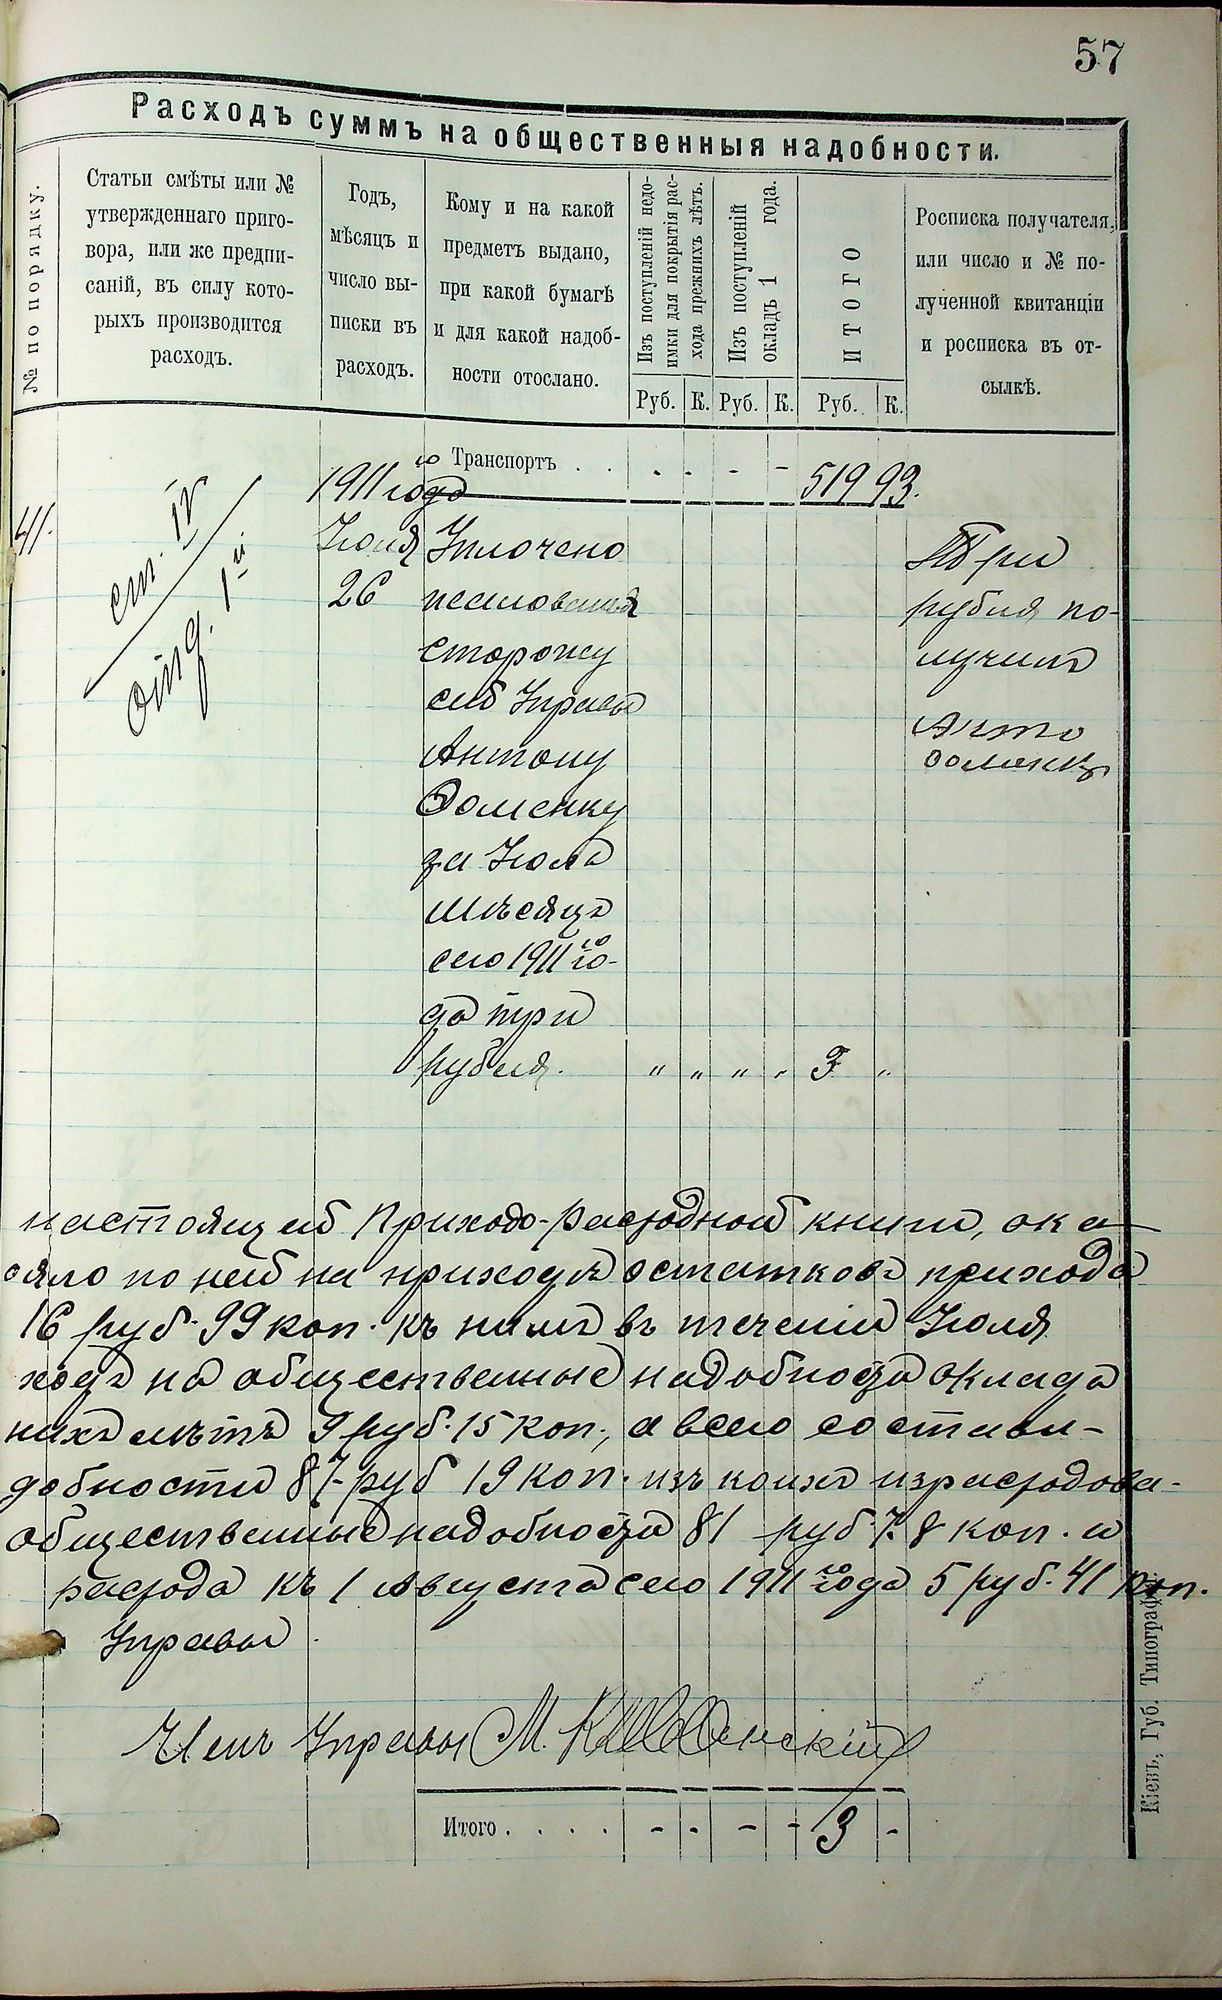 57
Расходъ суммъ на общественныя надобности.
№ по порядку.
Статьи смѣты или №
утвержденнаго приго-
вора, или же предпи-
саній, въ силу кото-
рыхъ производится
расходъ.
Годъ,
мѣсяцъ и
число вы-
писки въ
расходъ.
Кому и на какой
предметъ выдано,
при какой бумагѣ
и для какой надоб-
ности отослано.
Изъ поступленій недо-
имки для покрытія рас-
хода прежнихъ лѣтъ.
Изъ поступленій
окладъ 1 года.
ИТОГО
Росписка получателя,
или число и № по-
лученной квитанціи
и росписка въ от-
сылкѣ.
Руб. К. Руб. К. Руб. К.
Транспортъ . . . . - - 519 93.
1911 го года
41.
ст. IV
отд. 1й
Іюля
26
Уплочено
жалованья
сторожу
сей Управы
Антону
Доменку
за Іюль
мѣсяцъ
сего 1911 го го-
да три
рубля. " " " " 3 "
Три
рубля по-
лучилъ
Анто
Доменкъ
настоящей Приходо-Расходной книги, ока
ояло по ней на приходѣ остатковъ прихода
16 руб. 99 коп. къ нимъ въ теченіи Іюля
ходъ на общественные надобности оклада
нихъ лѣтъ 9 руб. 15 коп., а всего состави-
добности 87 руб 19 коп. изъ коихъ израсходова-
общественные надобности 81 руб. 78 коп. и
расхода къ 1 Августа сего 1911 го года 5 руб. 41 коп.
Управы
Членъ Управы М.
Итого . . . . - - - - 3 -
Кіевъ, Губ. Типограф.